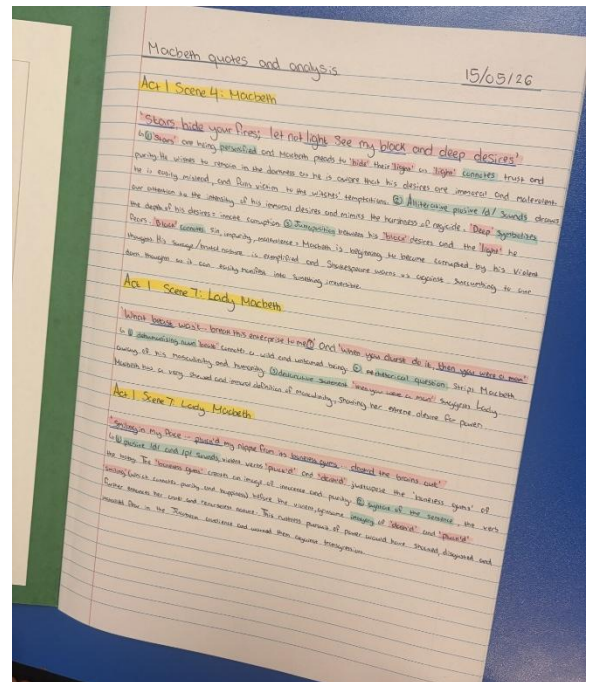 Macbeth quotes and analysis
15/05/26
Act 1 Scene 4: Macbeth
"Stars, hide your fires; let not light see my black and deep desires"
↳ ① 'Stars' are being personified and Macbeth pleads to 'hide' their 'light' as 'light' connotes trust and
purity. He wishes to remain in the darkness as he is aware that his desires are immoral and malevolent.
he is easily mislead, and falls victim to the witches' temptations. ② Alliterative plosive /d/ sounds draws
our attention to the intensity of his immoral desires and mimics the harshness of regicide. 'Deep' symbolises
the depth of his desires: innate corruption ③ Juxtaposition between his 'black' desires and the 'light' he
fears. 'Black' connotes sin, impurity, malevolence: Macbeth is beginning to become corrupted by his violent
thoughts. His savage/brutal nature is exemplified and Shakespeare warns us against succumbing to our
thoughts as it can easily manifest into something irreversible.
Act 1 Scene 7: Lady Macbeth
'What beast was't.. break this enterprise to me?' And 'when you durst do it, then you were a man'
↳ ① dehumanising noun 'beast' connotes a wild and untamed being. ② rhetorical question strips Macbeth
away of his masculinity and humanity. ③ declarative statement 'then you were a man' Lady
Macbeth has a very skewed and definition of masculinity, showing her extreme desire for power.
Act 1 Scene 7: Lady Macbeth
"Smiling in my face .. pluck'd my nipple from its boneless gums .. dashed the brains out'
↳ ① plosive /d/ and /p/ sounds, violent verbs 'pluck'd' and 'dash'd' juxtapose the 'boneless gums' of
the baby. The 'boneless gums' creates an image of innocence and purity. ② of the sentence, the verb
smiling (which connotes purity and happiness) before the violent, gruesome imagery of 'dash'd' and 'pluck'd'
further enhances her and remorseless nature. This ruthless pursuit of power would have shocked, disgusted and
fear in the Jacobean audience and warned them against transgression.